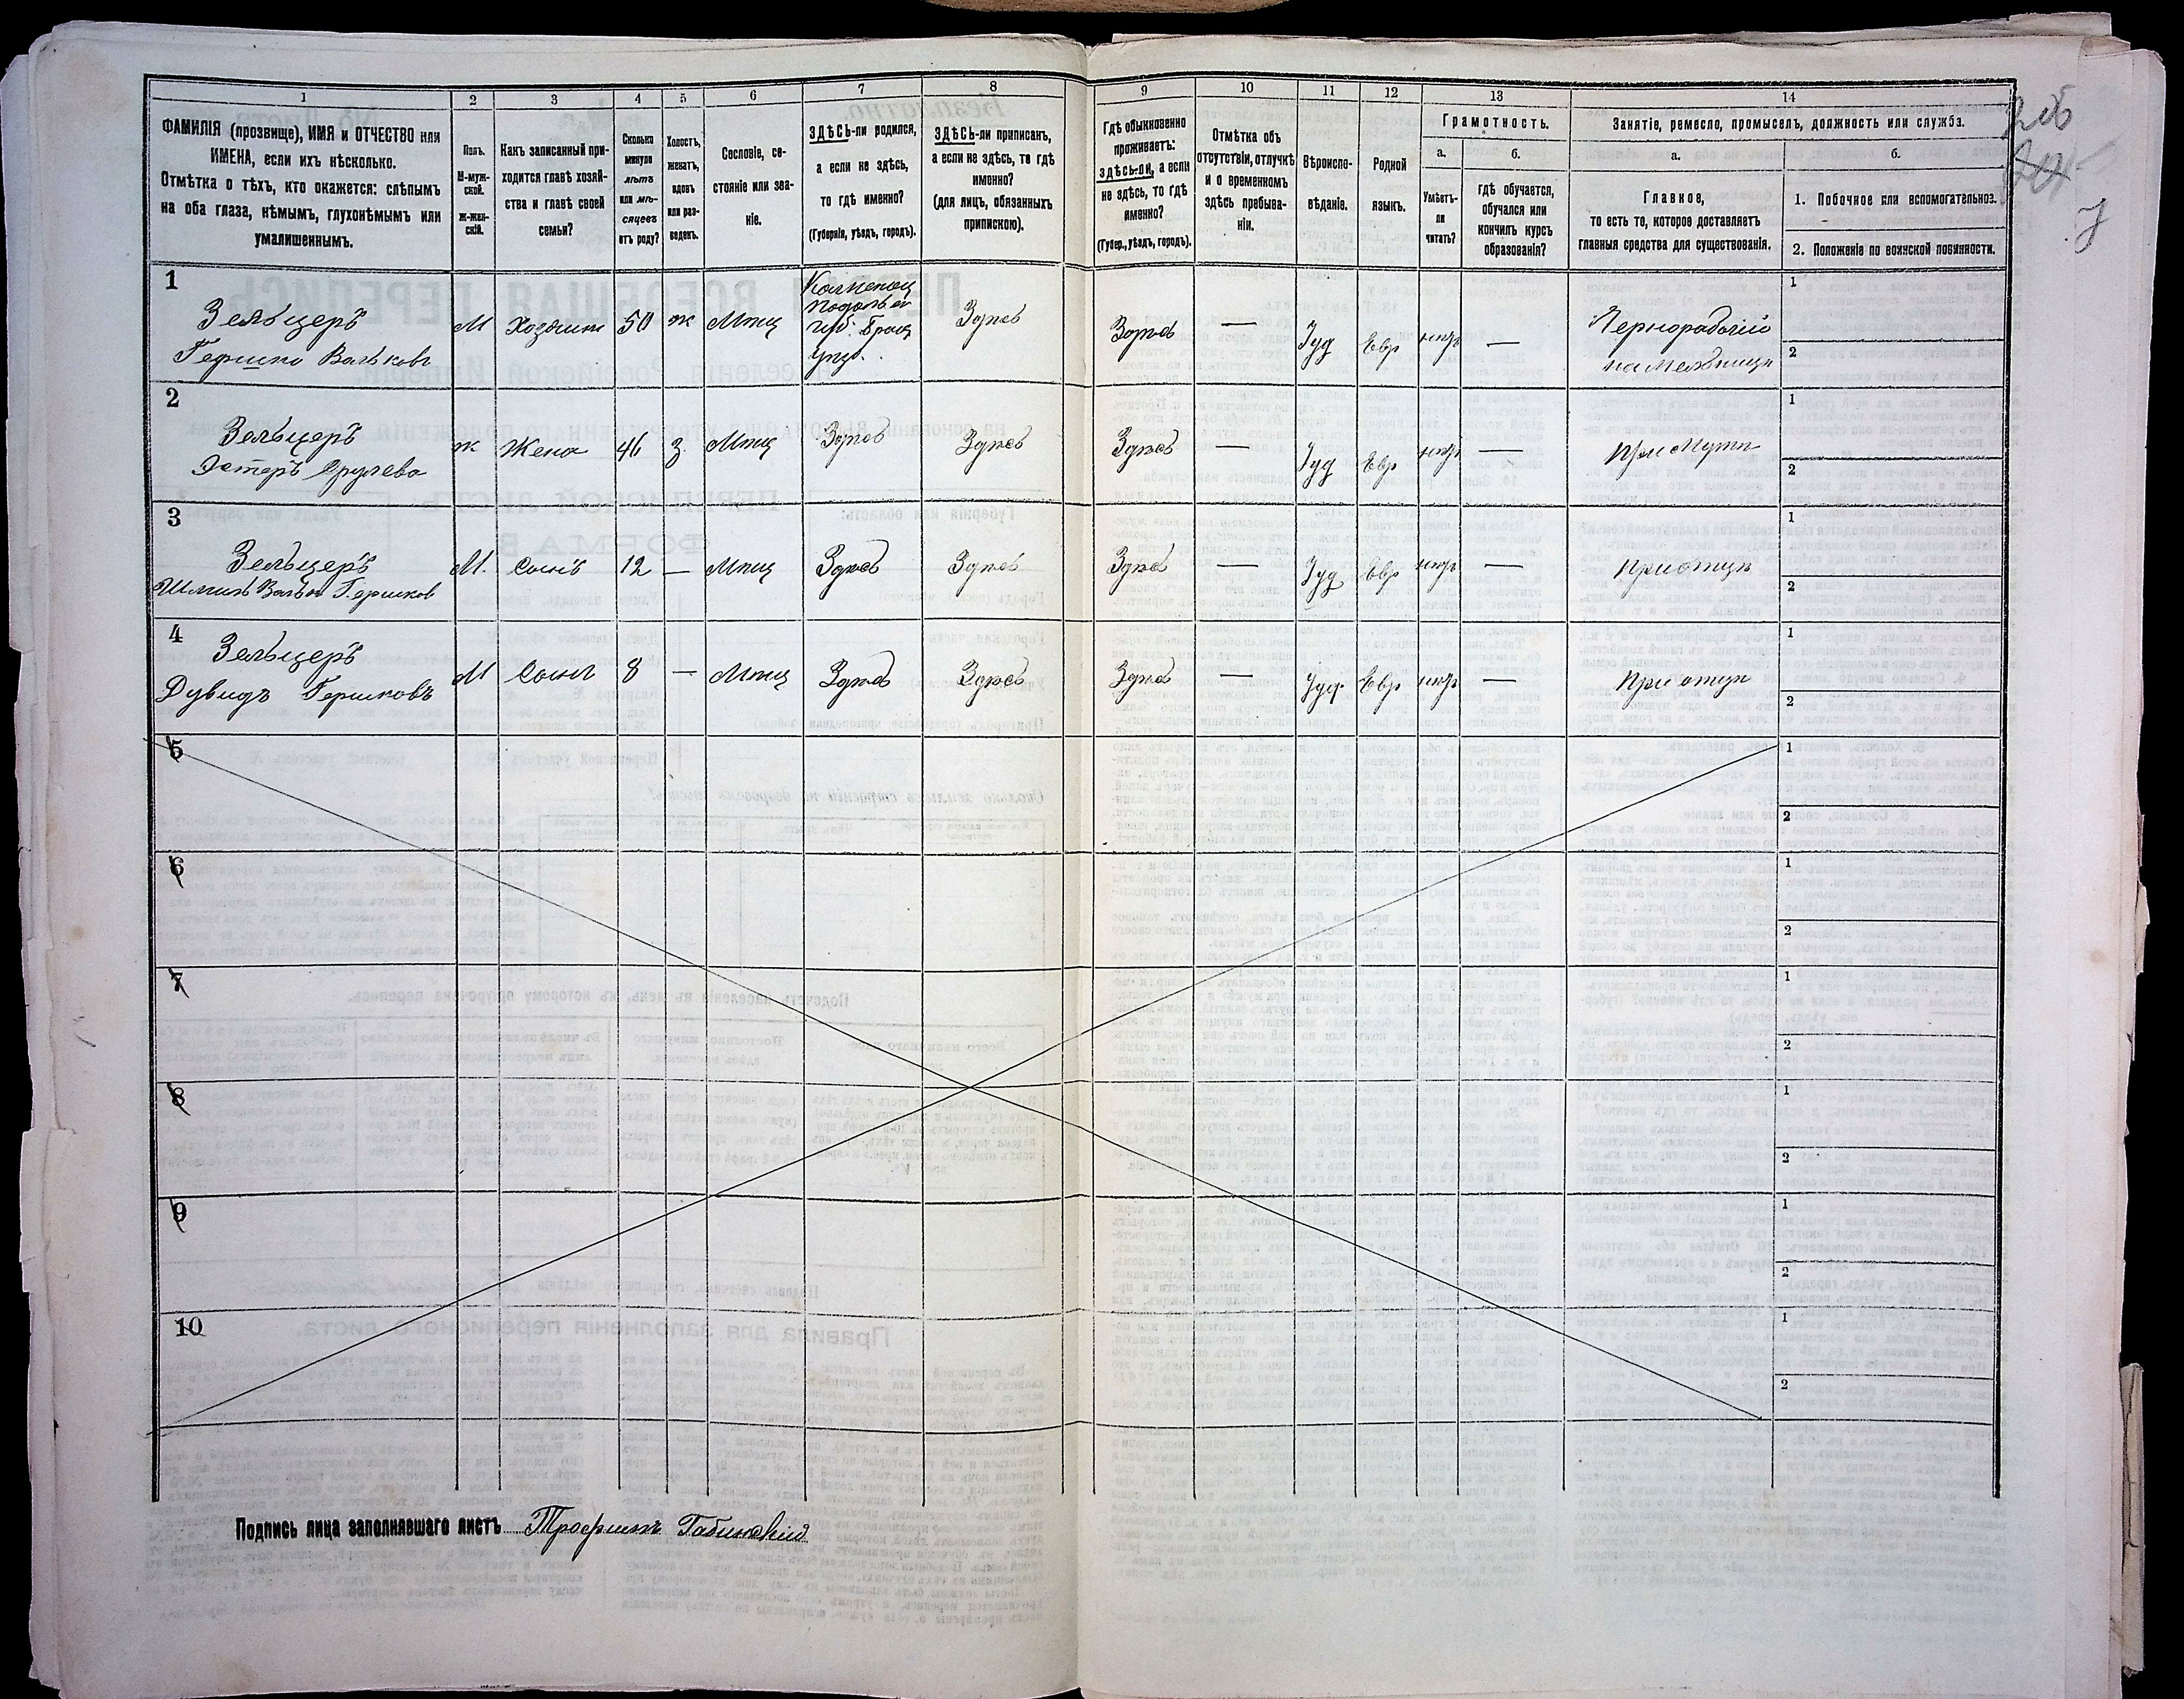 1 2 3 4 5 6 7 8 9 10 11 12 13 14
ФАМИЛІЯ (прозвище), ИМЯ и ОТЧЕСТВО или
ИМЕНА, если ихъ нѣсколько.
Отмѣтка о тѣхъ, кто окажется: слѣпымъ
на оба глаза, нѣмымъ, глухонѣмымъ или
умалишеннымъ.
Полъ.
М-муж-
ской.
ж-жен-
скій.
Какъ записанный при-
ходится главѣ хозяй-
ства и главѣ своей
семьи?
Сколько
минуло
лѣтъ
или мѣ-
сяцевъ
отъ роду?
Холостъ,
женатъ,
вдовъ
или раз-
веденъ.
Сословіе, со-
стояніе или зва-
ніе.
ЗДѢСЬ-ли родился,
а если не здѣсь,
то гдѣ именно?
(Губернія, уѣздъ, городъ).
ЗДѢСЬ-ли приписанъ,
а если не здѣсь, то гдѣ
именно?
(для лицъ, обязанныхъ
припискою).
Гдѣ обыкновенно
проживаетъ:
здѣсь-ли, а если
не здѣсь, то гдѣ
именно?
(Губер., уѣздъ, городъ).
Отмѣтка объ
отсутствіи, отлучкѣ
и о временномъ
здѣсь пребыва-
ніи.
Вѣроиспо-
вѣданіе.
Родной
языкъ.
Грамотность.
а. б.
Умѣетъ-
ли
читать?
гдѣ обучается,
обучался или
кончилъ курсъ
образованія?
Занятіе, ремесло, промыселъ, должность или служба.
а. б.
Главное,
то есть то, которое доставляетъ
главныя средства для существованія.
1. Побочное или вспомогательное.
2. Положеніе по воинской повинности.
1
Зельцеръ
Гершко Вольковъ
М Хозяинъ 50 ж Мѣщ
Каменец
Подольск
губ. Брац
уѣзд.
Здѣсь Здѣсь — Іуд Евр нѣтъ —
Чернорабочій
на мельницѣ
1
2
2
Зельцеръ
Эстеръ Срулева
ж Жена 46 З Мѣщ Здѣсь Здѣсь Здѣсь — Іуд Евр нѣтъ — При Мужѣ
1
2
3
Зельцеръ
Вольф Гершков
М. Сынъ 12 — Мѣщ Здѣсь Здѣсь Здѣсь — Іуд Евр нѣтъ — При отцѣ
1
2
4
Зельцеръ
Дувидъ Гершковъ
М Сынъ 8 — Мѣщ Здѣсь Здѣсь Здѣсь — Іуд. Евр нѣтъ — При отцѣ
1
2
5
1
2
6
1
2
7
1
2
8
1
2
9
1
2
10
1
2
Подпись лица заполнявшаго листъ Трофимъ Габинскій